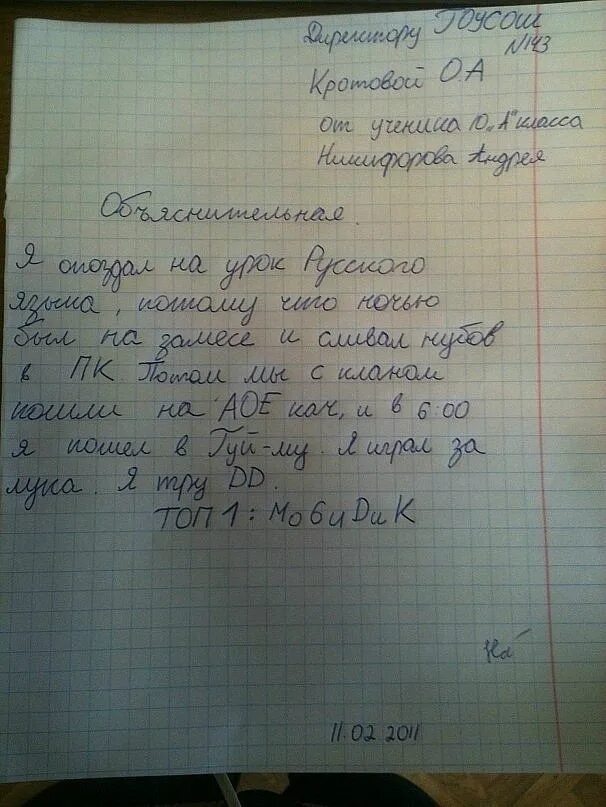 Директору ГОУСОШ
N143
Кротовой О.А
от ученика 10 „А" класса
Никифорова Андрея
Объяснительная.
Я опоздал на урок Русского
языка, потому что ночью
был на замесе и сливал нубов
в ПК. Потом мы с кланом
пошли на АОЕ кач, и в 6:00
я пошел в Гуй-му. Я играл за
лука. Я тру DD.
ТОП 1: МоБиДиК
11.02 2011